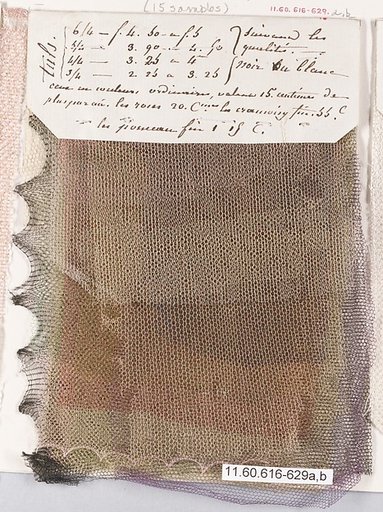 (15 samples)
11.60.616-629a,b
tuls.
6/4 — f. 4. 50 a f. 5
5/4 — 3. 90 — 4. 50
4/4 — 3. 25 a 4
3/4 — 2. 25 a 3. 25
Suivant les
qualités.
noir ou blanc
ceux en couleurs ordinaires, valent 15 centimes de
plus par au. les roses 20. C.mes les cramoisy fin. 55. C
les ponceau fin 1 15 C.
11.60.616-629a,b